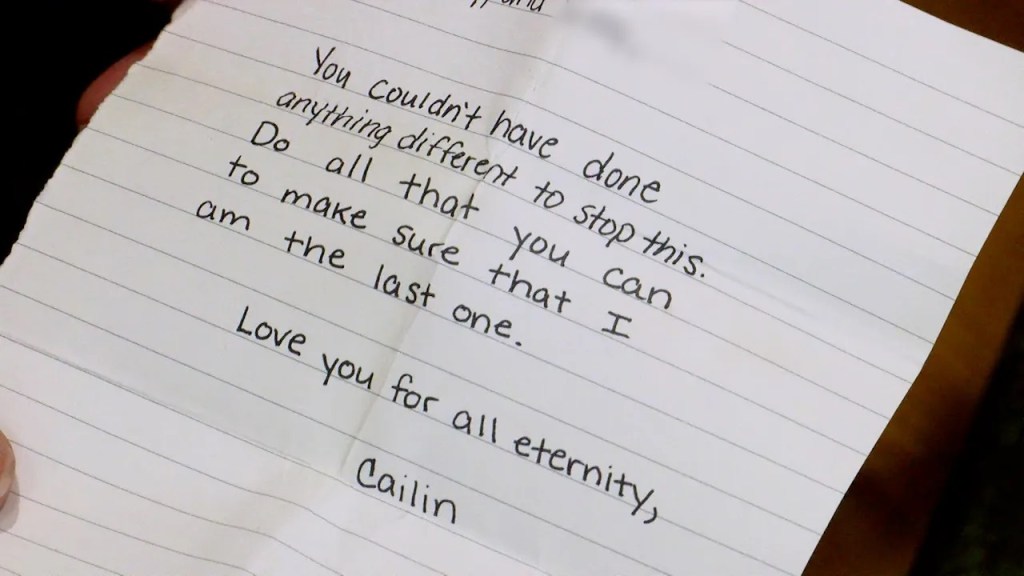 You couldn't have done
anything different to stop this.
Do all that you can
to make sure that I
am the last one.
Love you for all eternity,
Cailin